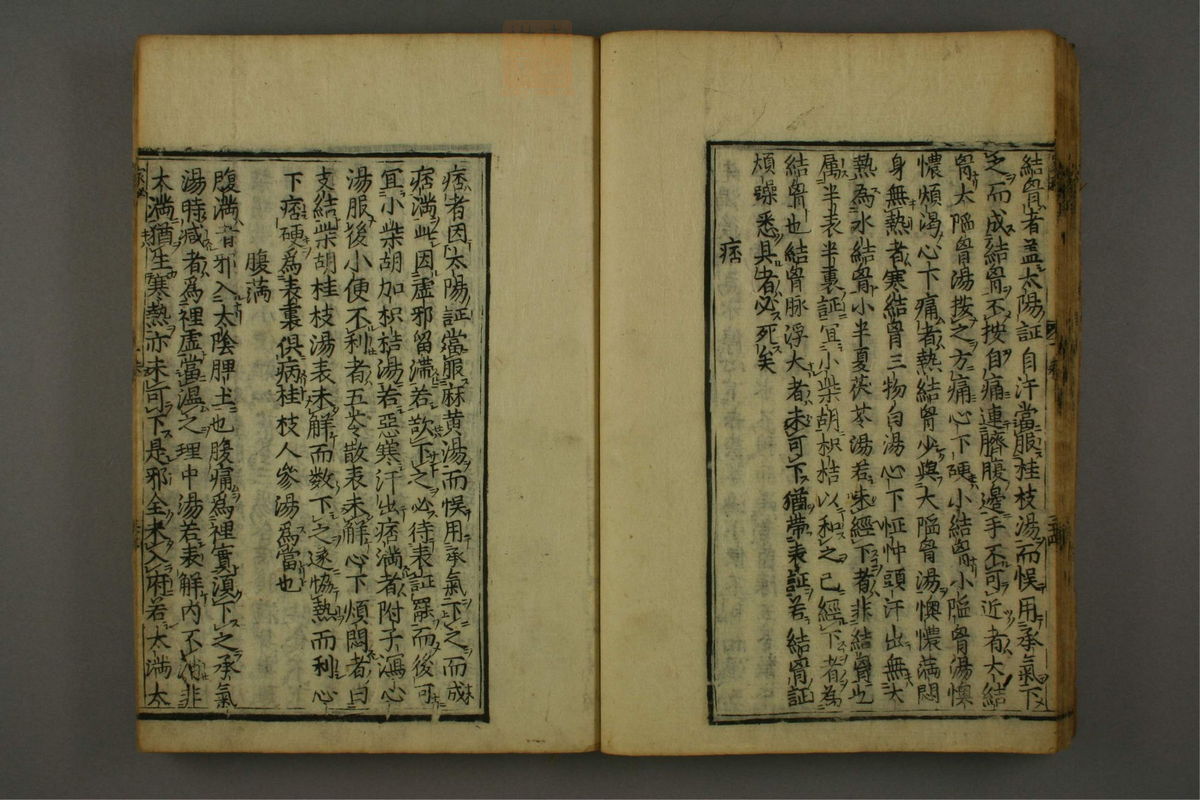 結胷者盖太陽証自汗當服桂枝湯而悮用承氣下
之而成結胷不按自痛連臍腹邉手不可近者大結
胷大䧟胷湯按之方痛心下硬小結胷小䧟胷湯懊
憹煩渴心下痛者熱結胷少與大䧟胷湯懊憹満悶
身無熱者寒結胷三物白湯心下怔忡頭汗出無大
熱為水結胷小半夏茯苓湯若未經下者非結胷也
属半表半裏証冝小柴胡枳桔以和之已經下者為
結胷也結胷脉浮大者未可下猶帶表証若結胷証
煩躁悉具者必死矣
痞
痞者因太陽証當服麻黄湯而悮用承氣下之而成
痞満此因虚邪留滞若欲下之必待表証罷而後可
冝小柴胡加枳桔湯若惡寒汗出痞満者附子瀉心
湯服後小便不利者五苓散表未解心下煩悶者白
支結柴胡桂枝湯表未解而数下之遂恊熱而利心
下痞硬爲表裏俱病桂枝人參湯爲當也
腹満
腹満者邪入太陰脾土也腹痛爲裡實湏下之承氣
湯時减者爲裡虚當温之理中湯若表解内不消非
太満猶生寒熱亦未可下是邪全未入府若太満太